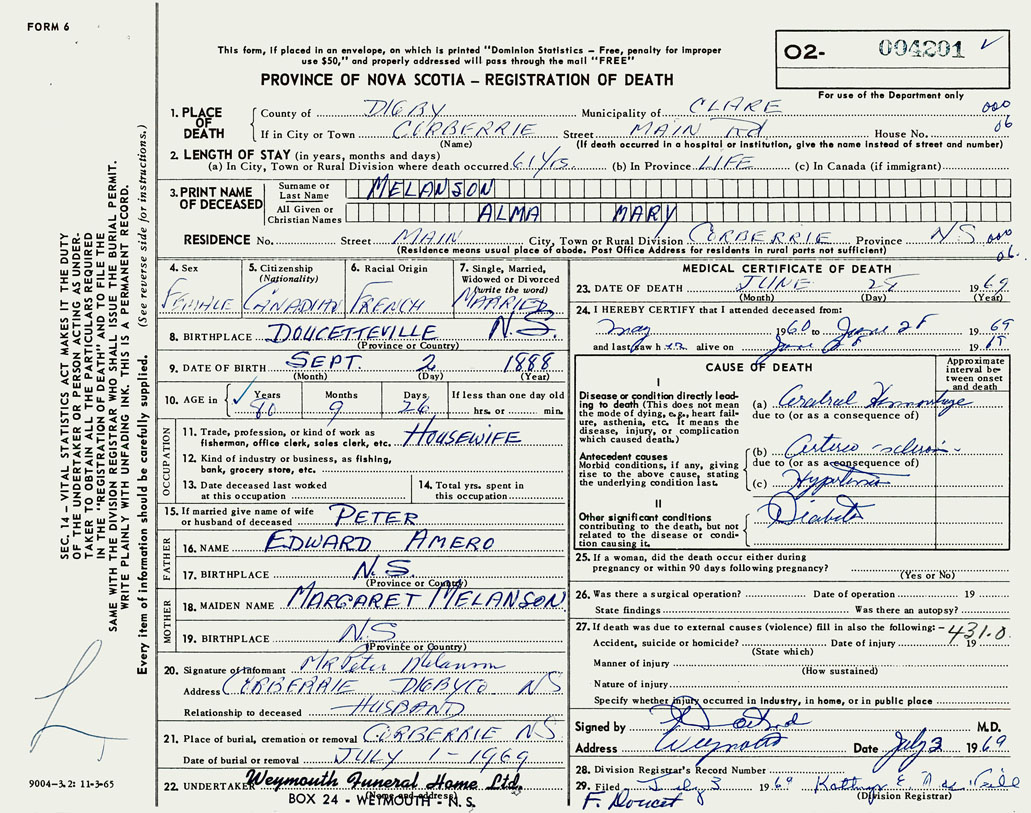 FORM 6
This form, if placed in an envelope, on which is printed "Dominion Statistics – Free, penalty for improper
use $50," and properly addressed will pass through the mail "FREE"
PROVINCE OF NOVA SCOTIA – REGISTRATION OF DEATH
O2- 004201 ✓
For use of the Department only
1. PLACE OF DEATH
County of DIGBY Municipality of CLARE 000
If in City or Town CORBERRIE Street MAIN Rd House No. 06
(Name) (If death occurred in a hospital or institution, give the name instead of street and number)
2. LENGTH OF STAY (in years, months and days)
(a) In City, Town or Rural Division where death occurred 61 yrs (b) In Province LIFE (c) In Canada (if immigrant)
3. PRINT NAME OF DECEASED
Surname or Last Name MELANSON
All Given or Christian Names ALMA MARY
RESIDENCE No. Street MAIN City, Town or Rural Division CORBERRIE Province N S 000
(Residence means usual place of abode. Post Office Address for residents in rural parts not sufficient) 06
4. Sex FEMALE
5. Citizenship (Nationality) CANADIAN
6. Racial Origin FRENCH
7. Single, Married, Widowed or Divorced (write the word) MARRIED
8. BIRTHPLACE DOUCETTEVILLE N.S.
(Province or Country)
9. DATE OF BIRTH SEPT. 2 1888
(Month) (Day) (Year)
10. AGE in ✓ Years 80 Months 9 Days 26 If less than one day old
hrs. or min.
OCCUPATION
11. Trade, profession, or kind of work as
fisherman, office clerk, sales clerk, etc. HOUSEWIFE
12. Kind of industry or business, as fishing,
bank, grocery store, etc.
13. Date deceased last worked
at this occupation
14. Total yrs. spent in
this occupation
15. If married give name of wife
or husband of deceased PETER
FATHER
16. NAME EDWARD AMERO
17. BIRTHPLACE N.S.
(Province or Country)
MOTHER
18. MAIDEN NAME MARGARET MELANSON
19. BIRTHPLACE N.S
(Province or Country)
20. Signature of Informant Mr Peter Melanson
Address CORBERRIE DIGBY CO NS
Relationship to deceased HUSBAND
21. Place of burial, cremation or removal CORBERRIE NS
Date of burial or removal JULY 1 - 1969
22. UNDERTAKER Weymouth Funeral Home Ltd.
(Name and address)
BOX 24 - WEYMOUTH - N. S.
MEDICAL CERTIFICATE OF DEATH
23. DATE OF DEATH JUNE 28 1969
(Month) (Day) (Year)
24. I HEREBY CERTIFY that I attended deceased from:
May 1960 to June 28 1969
and last saw her alive on June 28 1969
CAUSE OF DEATH
Approximate interval between onset and death
I
Disease or condition directly leading to death (This does not
mean the mode of dying, e.g., heart failure, asthenia, etc. It means the
disease, injury, or complication
which caused death.)
(a) Cerebral Hemorrhage
due to (or as a consequence of)
Antecedent causes
Morbid conditions, if any, giving
rise to the above cause, stating
the underlying condition last.
(b) Arterio-sclerosis
due to (or as a consequence of)
(c) Hypertension
II
Other significant conditions
contributing to the death, but not
related to the disease or condition causing it.
Diabetes
25. If a woman, did the death occur either during
pregnancy or within 90 days following pregnancy?
(Yes or No)
26. Was there a surgical operation? Date of operation 19
State findings Was there an autopsy?
27. If death was due to external causes (violence) fill in also the following: - 431.0
Accident, suicide or homicide? Date of injury 19
(State which)
Manner of injury
(How sustained)
Nature of injury
Specify whether injury occurred in industry, in home, or in public place
Signed by M.D.
Address Weymouth Date July 3 1969
28. Division Registrar's Record Number
29. Filed July 3 1969 Kathryn E.
(Division Registrar)
F. Doucet
SEC. 14 – VITAL STATISTICS ACT MAKES IT THE DUTY
OF THE UNDERTAKER OR PERSON ACTING AS UNDER-
TAKER TO OBTAIN ALL THE PARTICULARS REQUIRED
IN THE "REGISTRATION OF DEATH" AND TO FILE THE
SAME WITH THE DIVISION REGISTRAR WHO SHALL ISSUE THE BURIAL PERMIT.
WRITE PLAINLY WITH UNFADING INK. THIS IS A PERMANENT RECORD.
Every item of information should be carefully supplied. (See reverse side for instructions.)
9004-3.2: 11-3-65